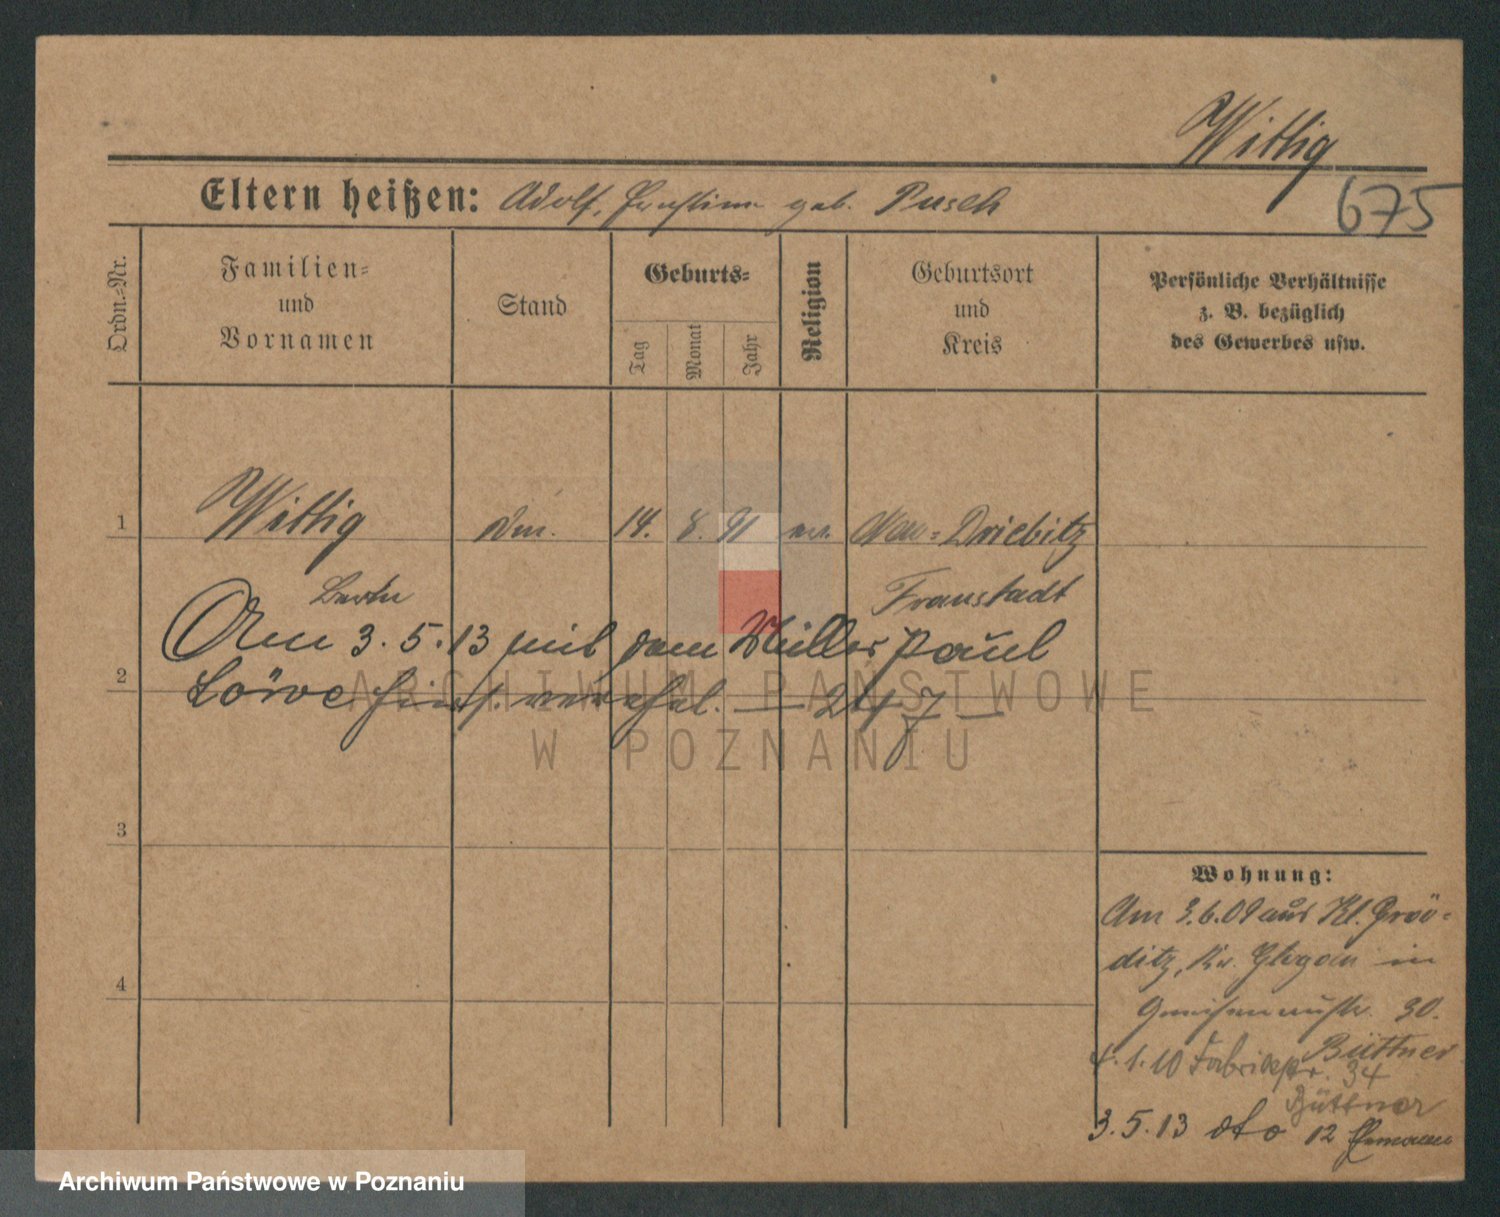 Wittig
675
Eltern heißen: Adolf, Ernstine geb. Pusch
Ordn.-Nr.
Familien-
und
Vornamen
Stand
Geburts-
Tag
Monat
Jahr
Religion
Geburtsort
und
Kreis
Persönliche Verhältnisse
z. B. bezüglich
des Gewerbes usw.
1
Wittig 14. 8. 91 ev. Neu-Driebitz
Fraustadt
Am 3.5.13 mit dem Müller Paul
2
Löwe hies. verehel. — 247 —
ARCHIWUM PAŃSTWOWE
W POZNANIU
3
4
Wohnung:
Am 3.6.09 aus Kl. Gröditz, Kr. Glogau in
Gneisenaustr. 30.
Büttner
4.1.10 Fabrikstr. 34
Büttner
3.5.13 dto 12 Ehemann
Archiwum Państwowe w Poznaniu